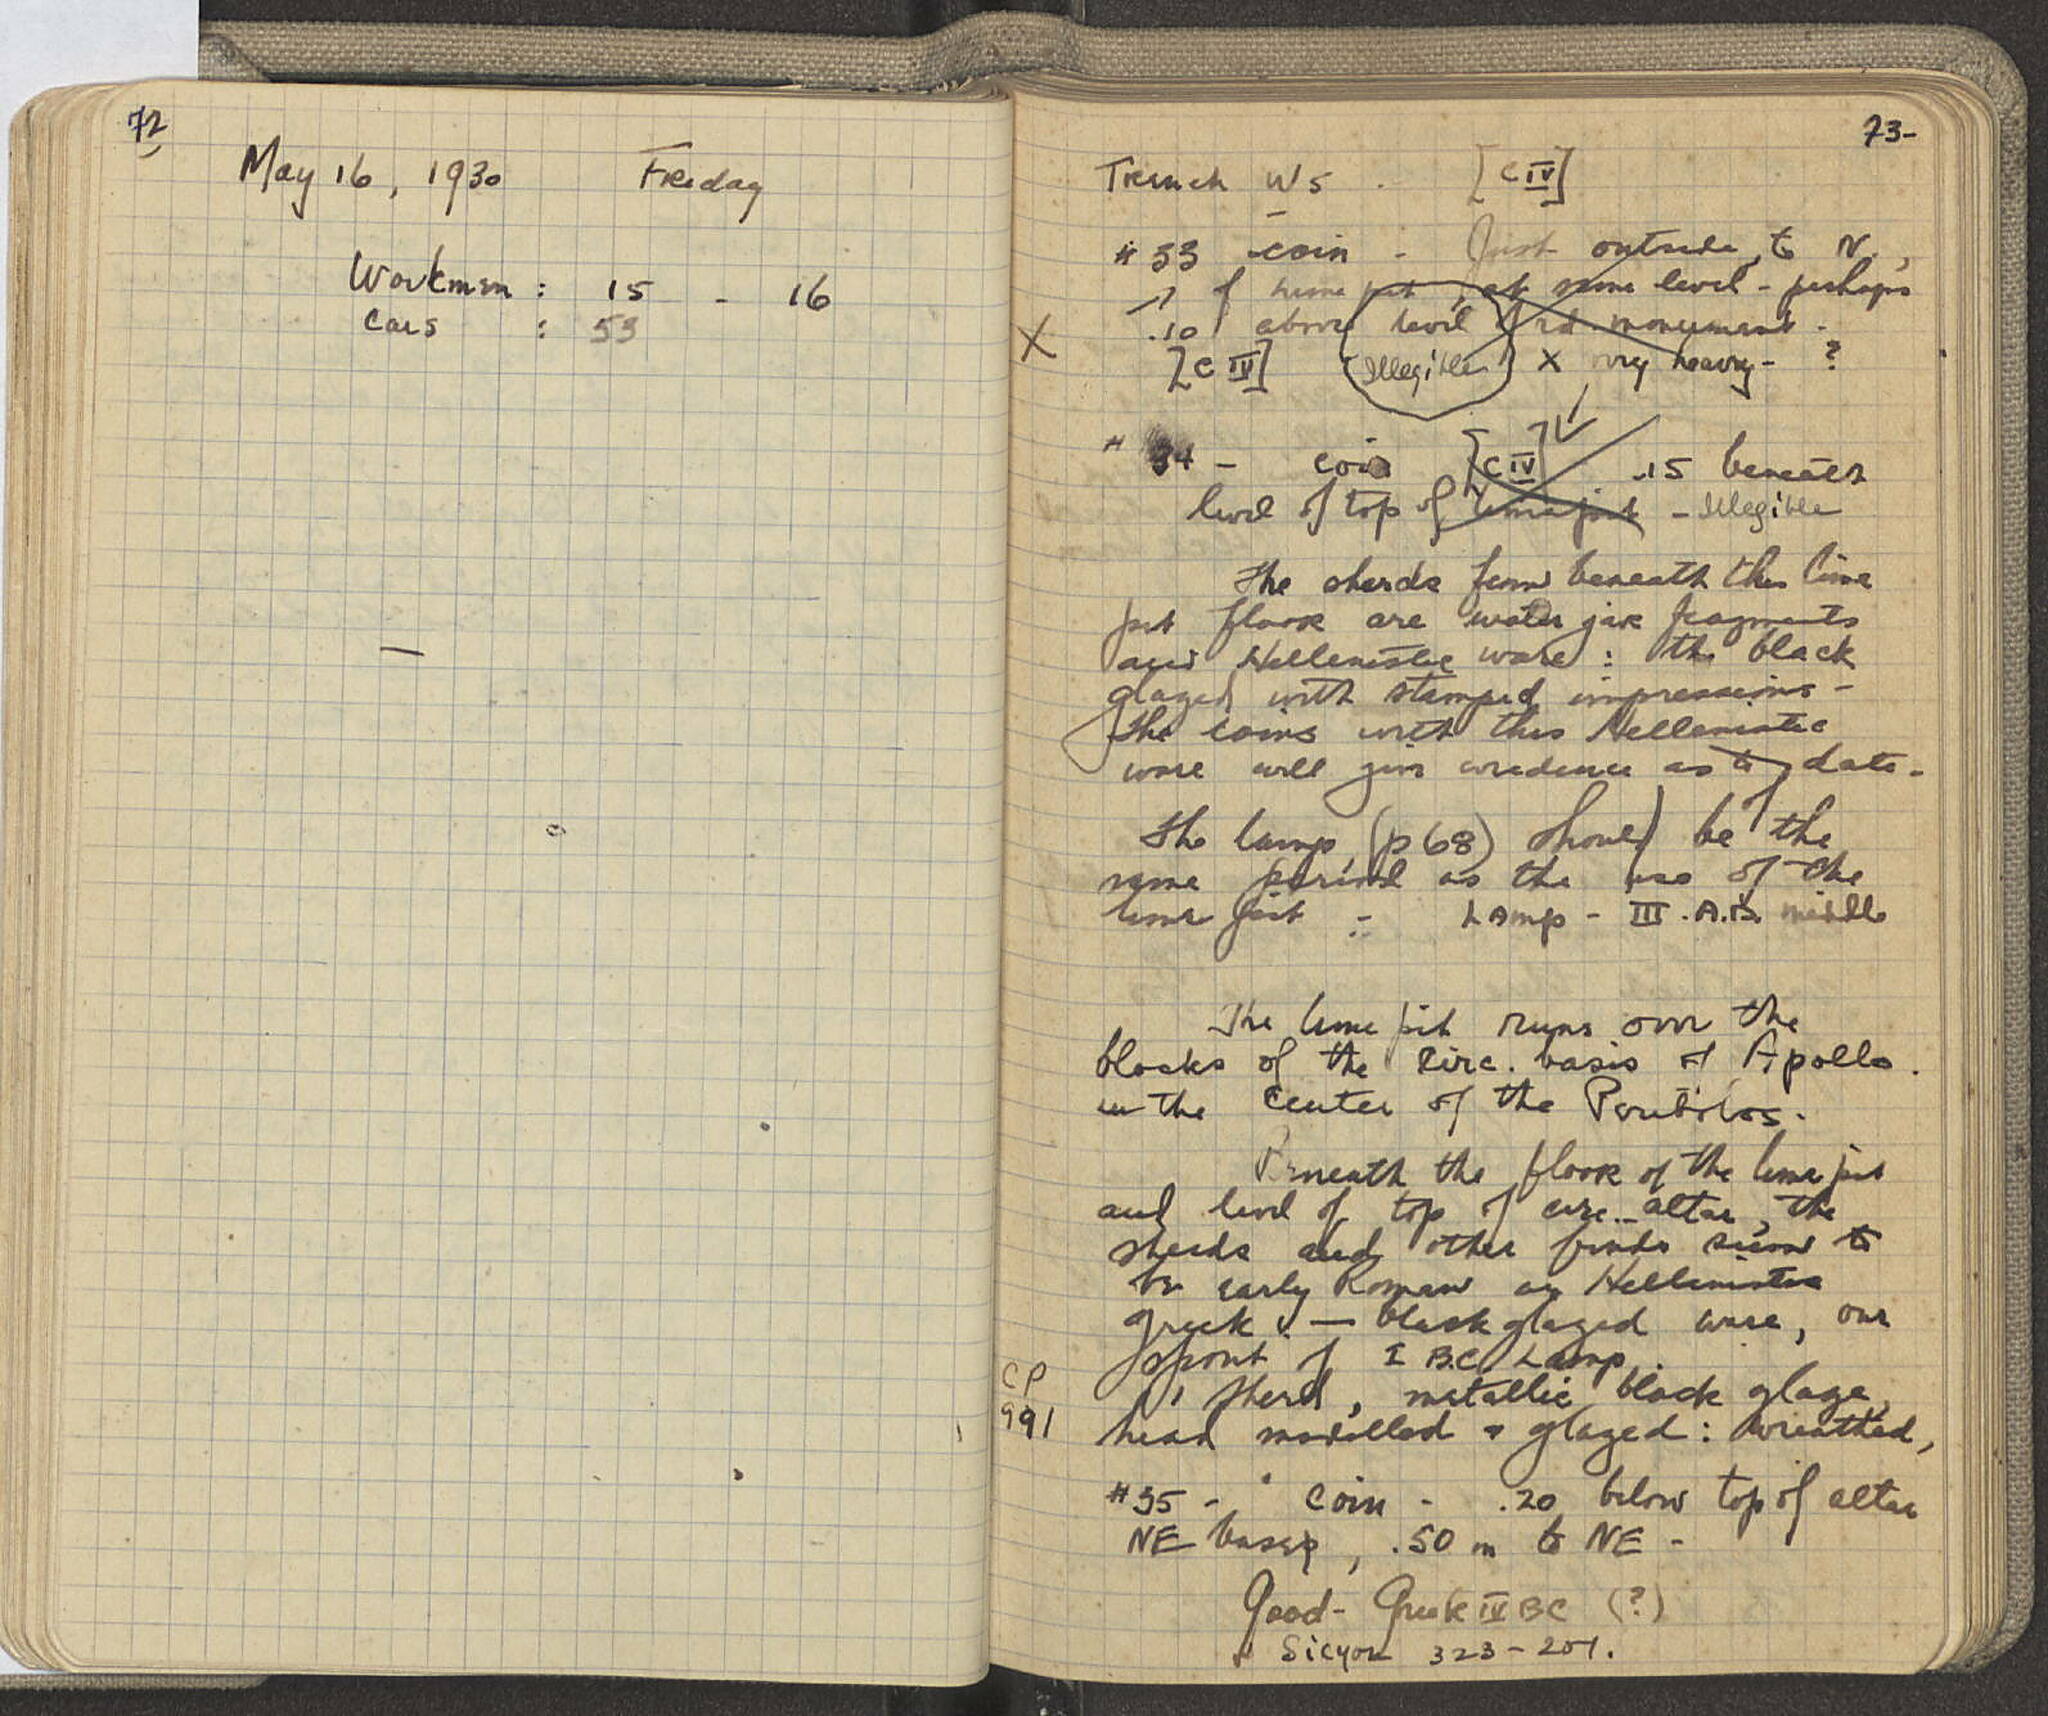 72
May 16, 1930 Friday
Workmen : 15 - 16
Cars : 53
73-
Trench W5 . [C IV]
# 33 coin - Just outside, to N.,
of lime pit, at same level - perhaps
X .10 above level of rd. monument -
[C IV] Illegible X very heavy - ?
# 34 - coin [C IV] .15 beneath
level of top of lime pit - Illegible
The sherds from beneath this lime
pit floor are water jar fragments
and Hellenistic ware : the black
glazed with stamped impressions -
The coins with this Hellenistic
ware will give evidence as to date -
of
The lamp (p 68) should be the
same period as the use of the
lime pit - Lamp - III . A.D. middle
The lime pit runs over the
blocks of the circ. basis of Apollo .
in the center of the Peribolos .
Beneath the floor of the lime pit
and level of top of circ. altar, the
sherds and other finds seem to
be early Roman or Hellenistic
Greek : — black glazed ware, one
spout of I B.C. Lamp .
CP 1 sherd, metallic black glaze,
991 head modelled & glazed : wreathed,
#35 - coin - .20 below top of altar
NE bases, .50 m to NE -
Good - Greek IV BC (?)
Sicyon 323 - 251.